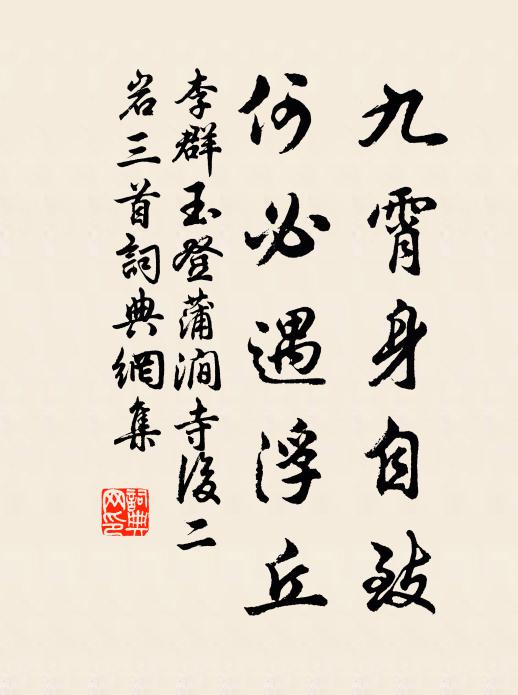 九霄身自致
何必遇浮丘
李群玉登蒲澗寺後二
岩三首詞典網集
詞典网印